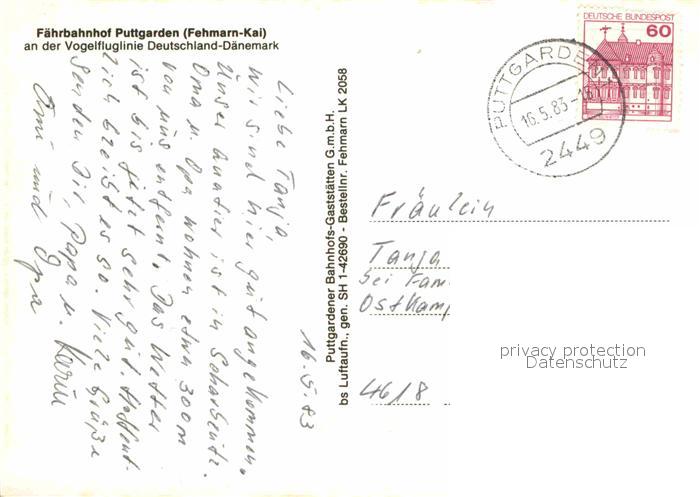 Fährbahnhof Puttgarden (Fehmarn-Kai)
an der Vogelfluglinie Deutschland-Dänemark
16.5.83
Liebe Tanja
Wir sind hier gut angekommen.
Unser Quatier ist in Scharbeutz.
Oma u. Opa wohnen etwa 300m
von uns entfernt. Das Wetter
ist bis jetzt sehr gut. Hoffent-
lich bleibt es so. Viele Grüße
senden Dir, Papa u. Karin
Omi und Opa
Puttgardener Bahnhofs-Gaststätten G.m.b.H.
bs Luftaufn., gen. SH 1-42690 - Bestellnr. Fehmarn LK 2058
DEUTSCHE BUNDESPOST
60
PUTTGARDEN
16.5.83-18
2449
Fräulein
Tanja
bei Fam
Ostkamp
4618
privacy protection
Datenschutz